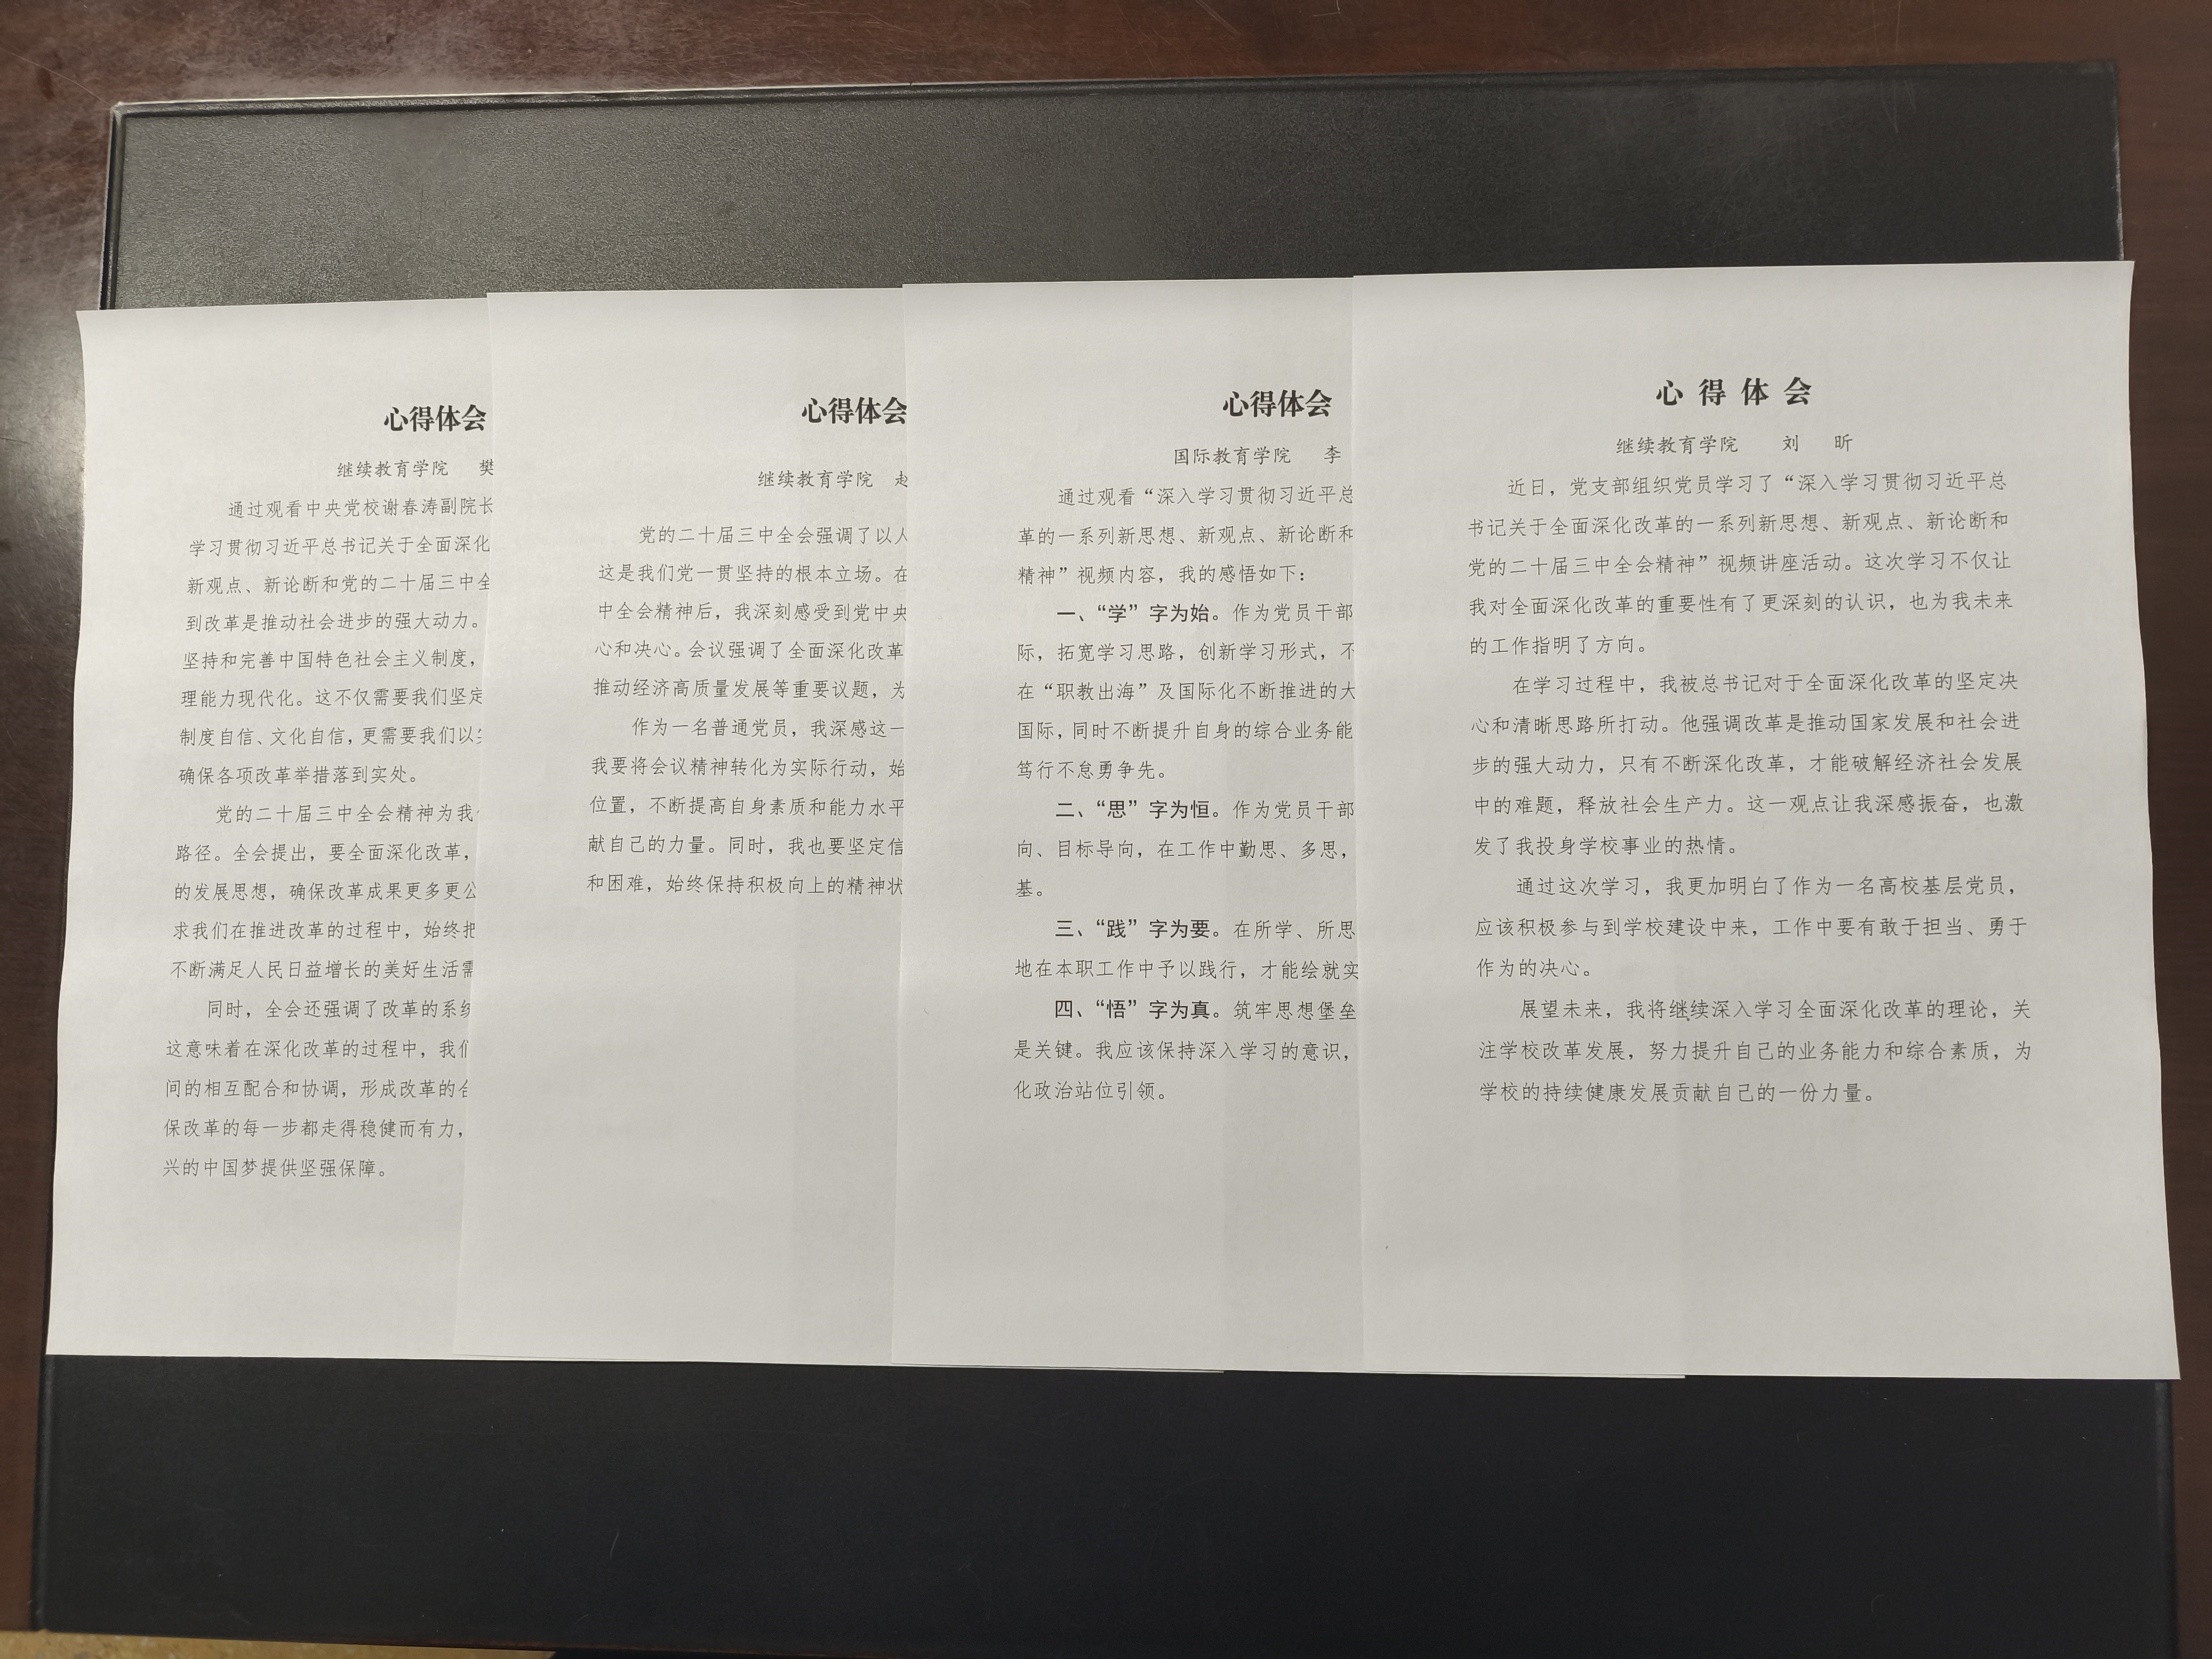 心得体会
继续教育学院 樊
通过观看中央党校谢春涛副院长
学习贯彻习近平总书记关于全面深化
新观点、新论断和党的二十届三中全
到改革是推动社会进步的强大动力。
坚持和完善中国特色社会主义制度，
理能力现代化。这不仅需要我们坚定
制度自信、文化自信，更需要我们以
确保各项改革举措落到实处。
党的二十届三中全会精神为我
路径。全会提出，要全面深化改革，
的发展思想，确保改革成果更多更公
求我们在推进改革的过程中，始终把
不断满足人民日益增长的美好生活需
同时，全会还强调了改革的系统
这意味着在深化改革的过程中，我们
间的相互配合和协调，形成改革的合
保改革的每一步都走得稳健而有力，
兴的中国梦提供坚强保障。
心得体会
继续教育学院 赵
党的二十届三中全会强调了以人
这是我们党一贯坚持的根本立场。在
中全会精神后，我深刻感受到党中央
心和决心。会议强调了全面深化改革
推动经济高质量发展等重要议题，为
作为一名普通党员，我深感这一
我要将会议精神转化为实际行动，始
位置，不断提高自身素质和能力水平
献自己的力量。同时，我也要坚定信
和困难，始终保持积极向上的精神状
心得体会
国际教育学院 李
通过观看“深入学习贯彻习近平总
革的一系列新思想、新观点、新论断和
精神”视频内容，我的感悟如下：
一、“学”字为始。作为党员干部
际，拓宽学习思路，创新学习形式，不
在“职教出海”及国际化不断推进的大
国际，同时不断提升自身的综合业务能
笃行不怠勇争先。
二、“思”字为恒。作为党员干部
向、目标导向，在工作中勤思、多思，
基。
三、“践”字为要。在所学、所思
地在本职工作中予以践行，才能绘就实
四、“悟”字为真。筑牢思想堡垒
是关键。我应该保持深入学习的意识，
化政治站位引领。
心得体会
继续教育学院 刘 昕
近日，党支部组织党员学习了“深入学习贯彻习近平总
书记关于全面深化改革的一系列新思想、新观点、新论断和
党的二十届三中全会精神”视频讲座活动。这次学习不仅让
我对全面深化改革的重要性有了更深刻的认识，也为我未来
的工作指明了方向。
在学习过程中，我被总书记对于全面深化改革的坚定决
心和清晰思路所打动。他强调改革是推动国家发展和社会进
步的强大动力，只有不断深化改革，才能破解经济社会发展
中的难题，释放社会生产力。这一观点让我深感振奋，也激
发了我投身学校事业的热情。
通过这次学习，我更加明白了作为一名高校基层党员，
应该积极参与到学校建设中来，工作中要有敢于担当、勇于
作为的决心。
展望未来，我将继续深入学习全面深化改革的理论，关
注学校改革发展，努力提升自己的业务能力和综合素质，为
学校的持续健康发展贡献自己的一份力量。